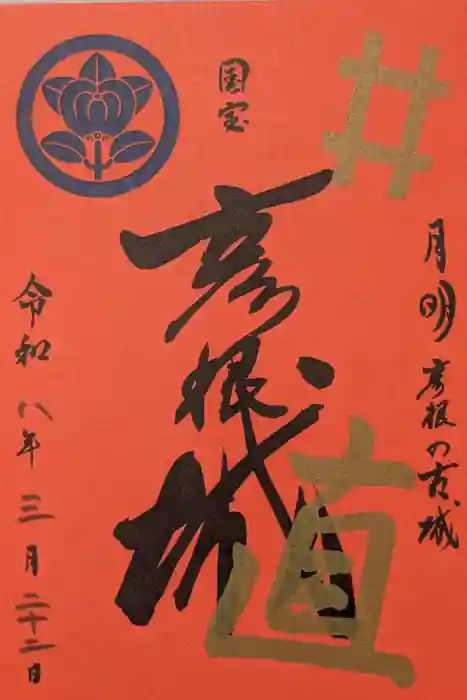 井
月明彦根の古城
国宝
彦根城
直
令和八年三月二十二日